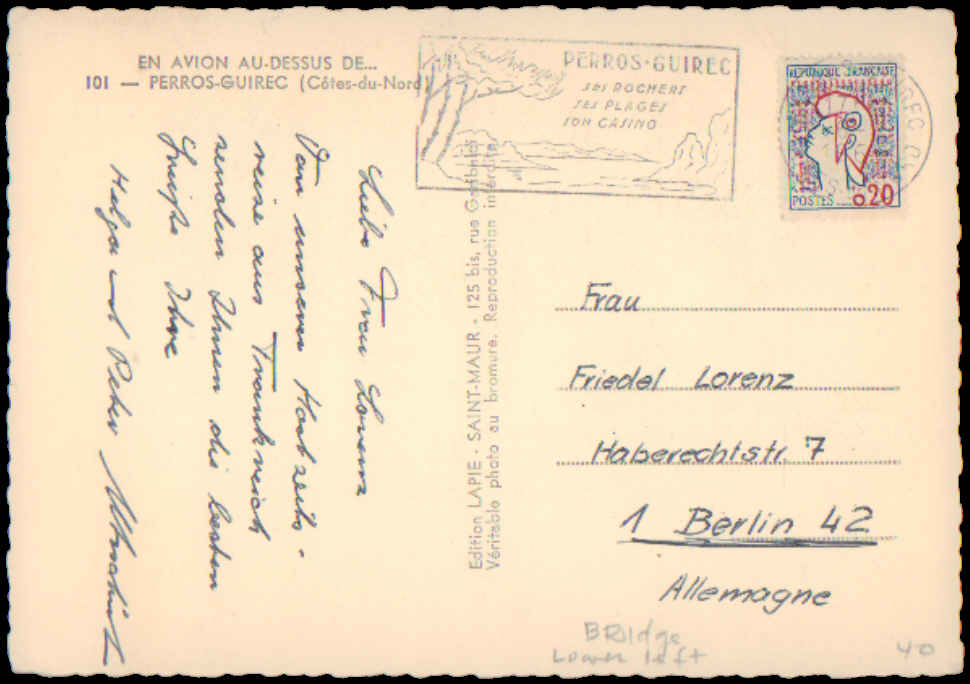 EN AVION AU-DESSUS DE...
101 — PERROS-GUIREC (Côtes-du-Nord)
PERROS-GUIREC
SES ROCHERS
SES PLAGES
SON CASINO
REPUBLIQUE FRANCAISE
POSTES 0.20
Liebe Frau Lorenz
Von unserer Hochzeits-
reise aus Frankreich
senden Ihnen die besten
Grüße Ihre
Helga und Peter
Edition LAPIE - SAINT-MAUR - 125 bis, rue Garibaldi
Véritable photo au bromure. Reproduction interdite.
Frau
Friedel Lorenz
Haberechtstr. 7
1 Berlin 42
Allemagne
BRIdge
Lower left
40